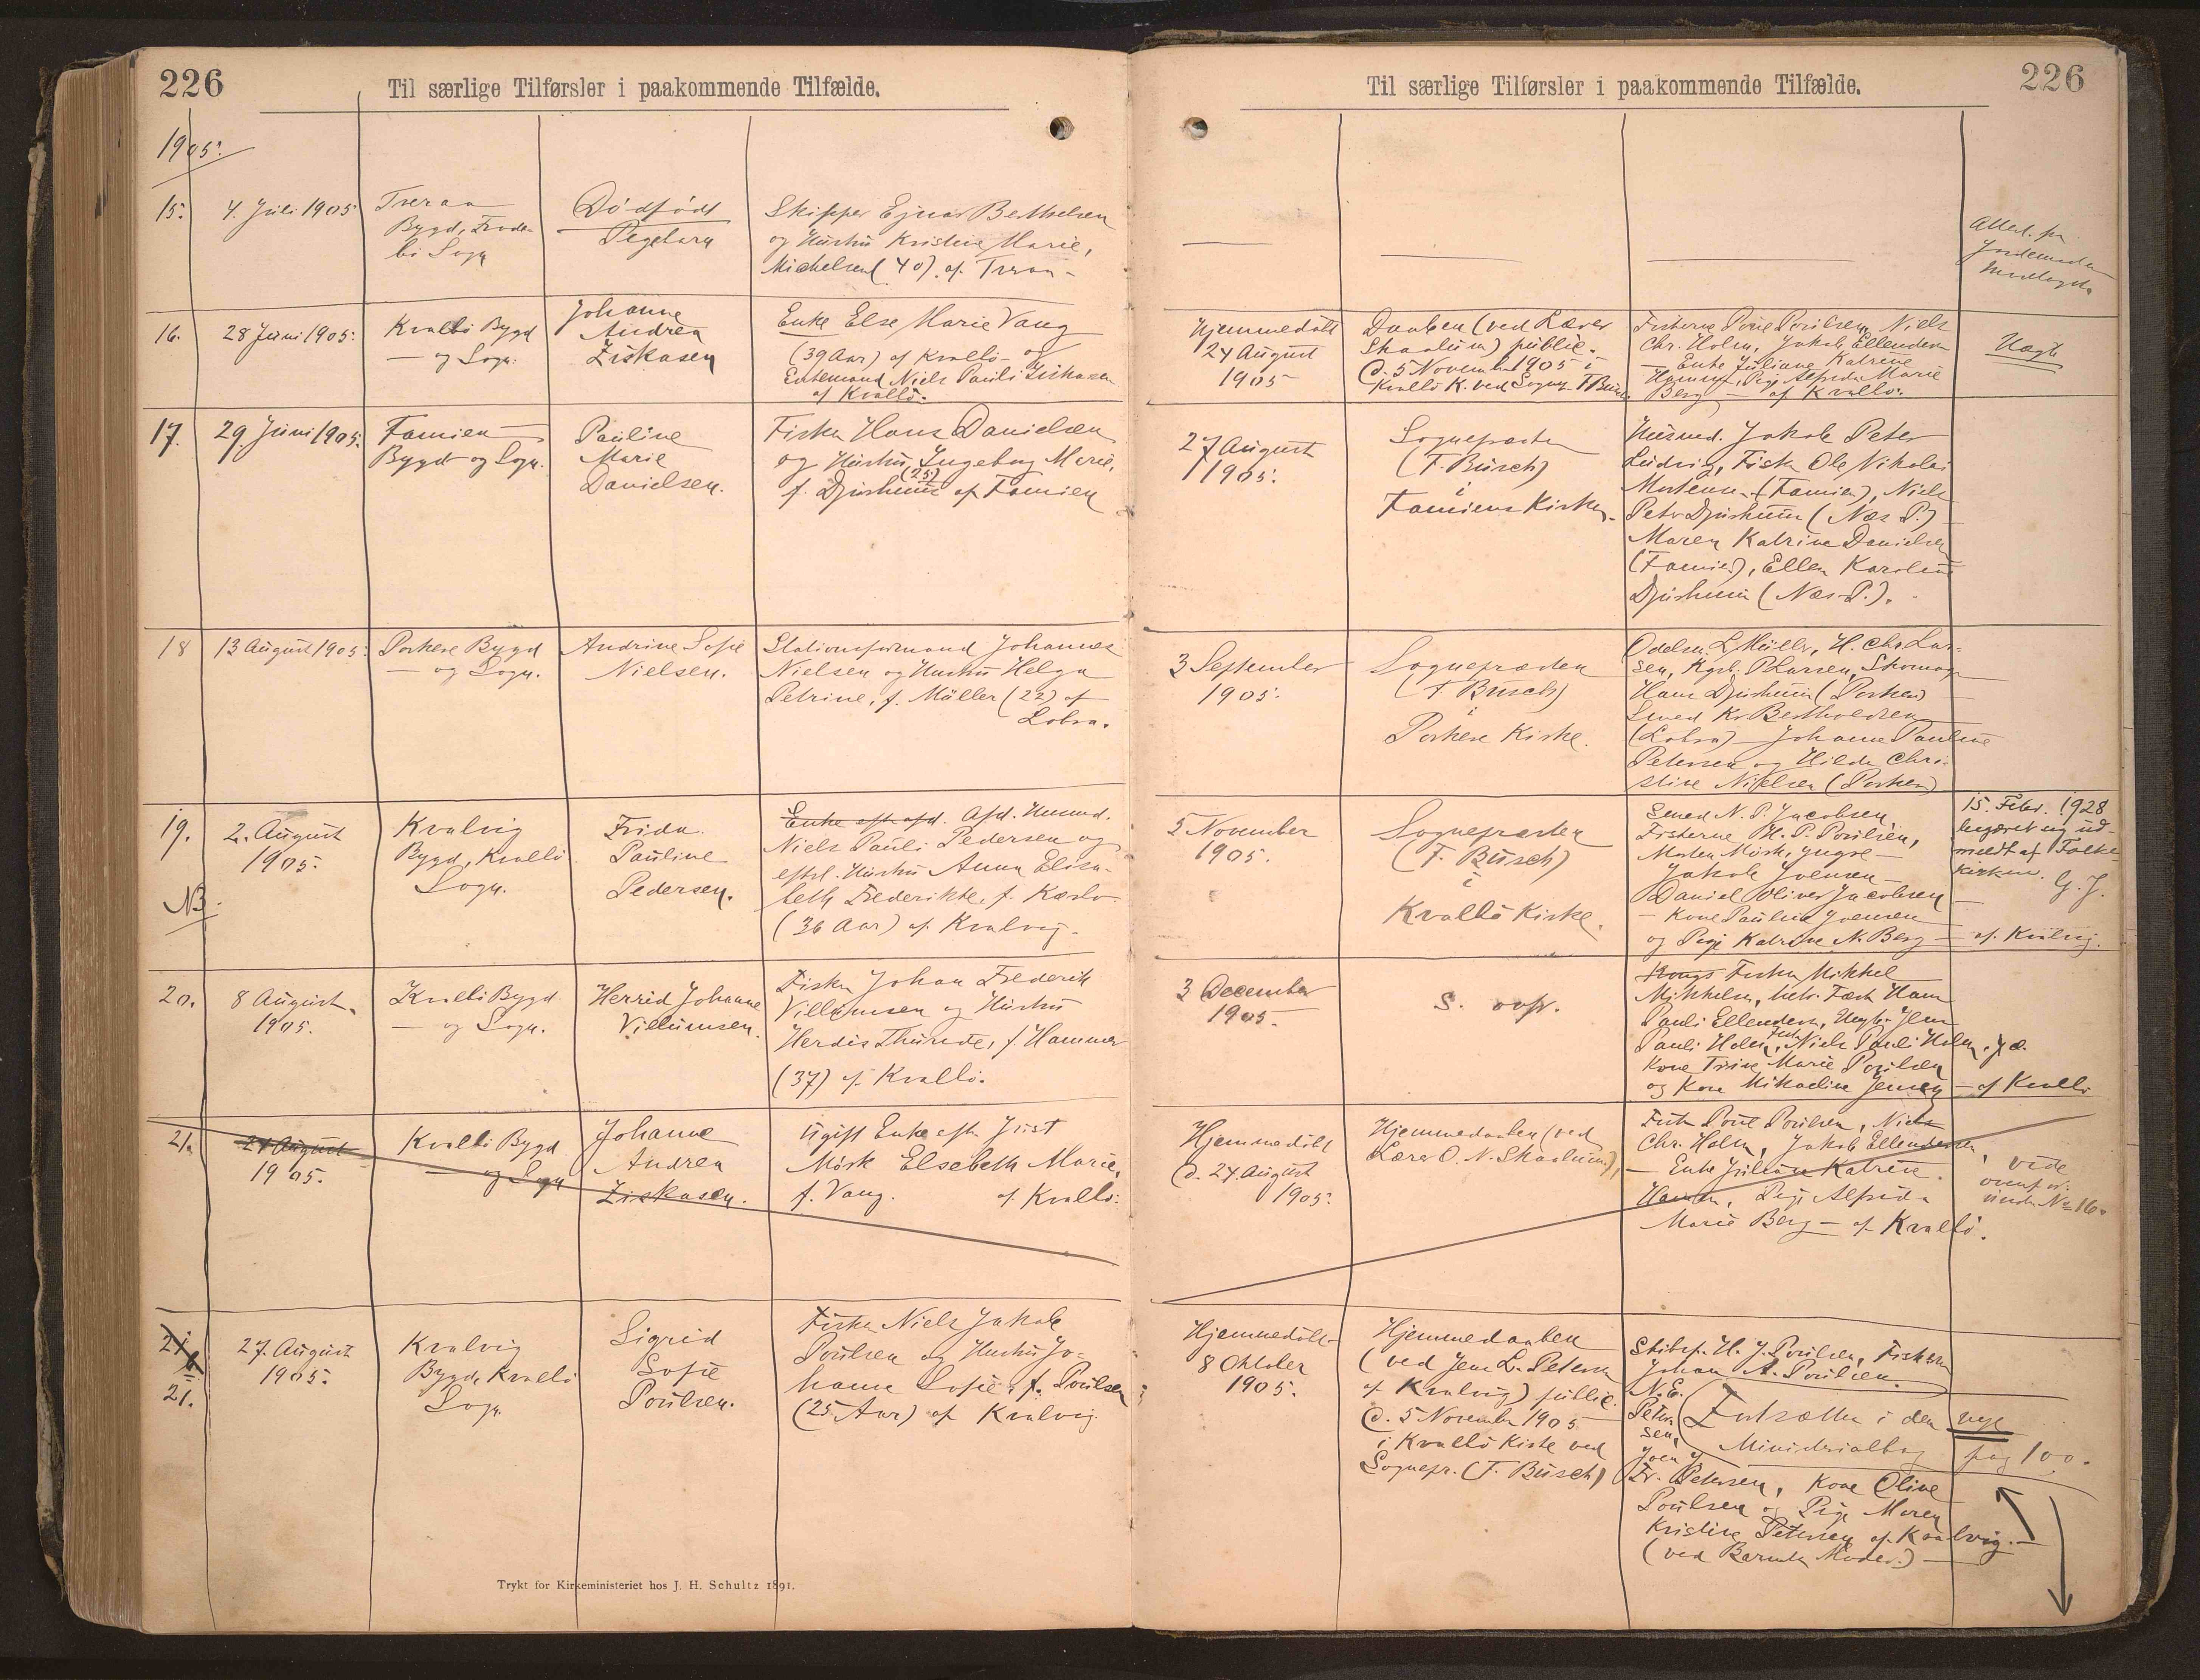 226
Til særlige Tilførsler i paakommende Tilfælde.
1905:
15. 4. Juli 1905
Tveraa
Bygd, Frode-
bö Sogn
Dödfödt
Pigebarn
Skipper Ejnar Berthelsen
og Hustru Kristine Marie,
Michelsen (40) af Tveraa-
16. 28 Juni 1905:
Kvalbö Bygd
- og Sogn.
Johanne
Andrea
Ziskasen
Enke Else Marie Vang
(39 Aar) af Kvalbö- og
Enkemand Niels Pauli Ziskasen
af Kvalbö.
17. 29. Juni 1905:
Famien
Bygd og Sogn.
Pauline
Marie
Danielsen.
Fisker Hans Danielsen
og Hustru Ingeborg Marie,
(25)
f. Djurhuus af Famien
18 13 August 1905:
Porkere Bygd
- og Sogn.
Andrine Sofie
Nielsen.
Stationsformand Johannes
Nielsen og Hustru Helga
Petrine, f. Müller (22) af
Lobra.
19. 2. August
1905:
NB.
Kvalvig
Bygd, Kvalbö
Sogn.
Frida
Pauline
Pedersen.
Enke eft. afd. Afd. Husmd.
Niels Pauli Pedersen og
eftrl. Hustru Anna Elisa-
beth Frederikke, f.
(36 Aar) af Kvalvig-
20. 8 August
1905.
Kvalbö Bygd
- og Sogn.
Herrid Johanne
Villumsen.
Fisker Johan Frederik
Villumsen og Hustru
Herdis Thuride, f. Hammer
(37) af Kvalbö.
21. 24 August
1905.
Kvalbö Bygd
- og Sogn
Johanne
Andrea
Ziskasen.
Ugift Enke eftr Just
Mörk Elsebeth Marie,
f. Vang. af Kvalbö:
21.
27. August
1905:
Kvalvig
Bygd, Kvalbö
Sogn.
Sigrid
Sofie
Poulsen.
Fisker Niels Jakob
Poulsen og Hustru Jo-
hanne Sofie, f. Poulsen
(25 Aar) af Kvalvig.
Trykt for Kirkeministeriet hos J. H. Schultz 1891.
Til særlige Tilførsler i paakommende Tilfælde.
226
Attest. fra
Jordemoder
modtaget.
Hjemmedöbt
24 August
1905
Daaben (ved Lærer
Skaalum) public.
d. 5 November 1905 i
Kvalbö K. ved Sognep. T. Busch
Fiskerne Poul Poulsen, Niels
Chr. Holm, Jakob Ellendersen
- Enke Juliane Katrine
Hansen, Pige Alfreda Marie
Berg - af Kvalbö.
Uægte
27 August
1905:
Sognepræsten
(T. Busch)
i
Famiens Kirke.
Husmd. Jakob Peter
Ludvig, Fisker Ole Nikolai
Mortensen (Famien), Niels
Peter Djurhuus (Næs P.)
Maren Katrine Danielsen
(Famien), Ellen Karoline
Djurhuus (Næs P.).
3 September
1905:
Sognepræsten
(T. Busch)
i
Porkere Kirke.
Odelsm. L. Müller, H. Chr. Lar-
sen, Kgsb. P. Larsen, Skomager
Hans Djurhuus (Porkere)
Smed Kr. Bertholdsen
(Lobra) - Johanne Pauline
Petersen og Hilda Chri-
stine Nielsen (Porkere)
5 November
1905.
Sognepræsten
(T. Busch)
i
Kvalbö Kirke.
Smed N. P. Jacobsen,
Fiskerne M. P. Poulsen,
Morten Mörk, Yngre -
Jakob Joensen -
Daniel Oliver Jacobsen
- Kone Pauline Joensen
og Pige Katrine N. Berg - af Kvalvig.
15. Febr. 1928
begæret sig ud-
meldt af Folke-
kirken.
G. J.
3 December
1905.
s. ovfr.
Kongs Fisker Mikkel
Mikkelsen, Fæst. Hans
Pauli Ellendersen, Ungk. Jens
Pauli Holm, Fisk. Niels Pauli Holm,
Kone Trine Marie Poulsen
og Kone Mikaeline Jensen - af Kvalbö
Hjemmedöbt
d. 24. August
1905:
Hjemmedaaben (ved
Lærer O. N. Skaalum),
Fisker Poul Poulsen, Niels
Chr. Holm, Jakob Ellendersen,
- Enke Juliane Katrine
Hansen, Pige Alfrida
Marie Berg - af Kvalbö.
vide
ovenfor
under No 16.
Hjemmedöbt
8 Oktober
1905.
Hjemmedaaben
(ved Jens L. Petersen
af Kvalvig) public.
d. 5 November 1905
i Kvalbö Kirke ved
Sognepr. (T. Busch)
Skibsf. H. J. Poulsen, Fiskerne
Johan A. Poulsen.
N. E.
Peter-
sen,
Joen
Fr. Petersen, Kone Oline
Poulsen og Pige Maren
Kristine Petersen af Kvalvig.-
(ved Barnets Moder.)
Fortsættes i den nye
Ministerialbog pag 100.